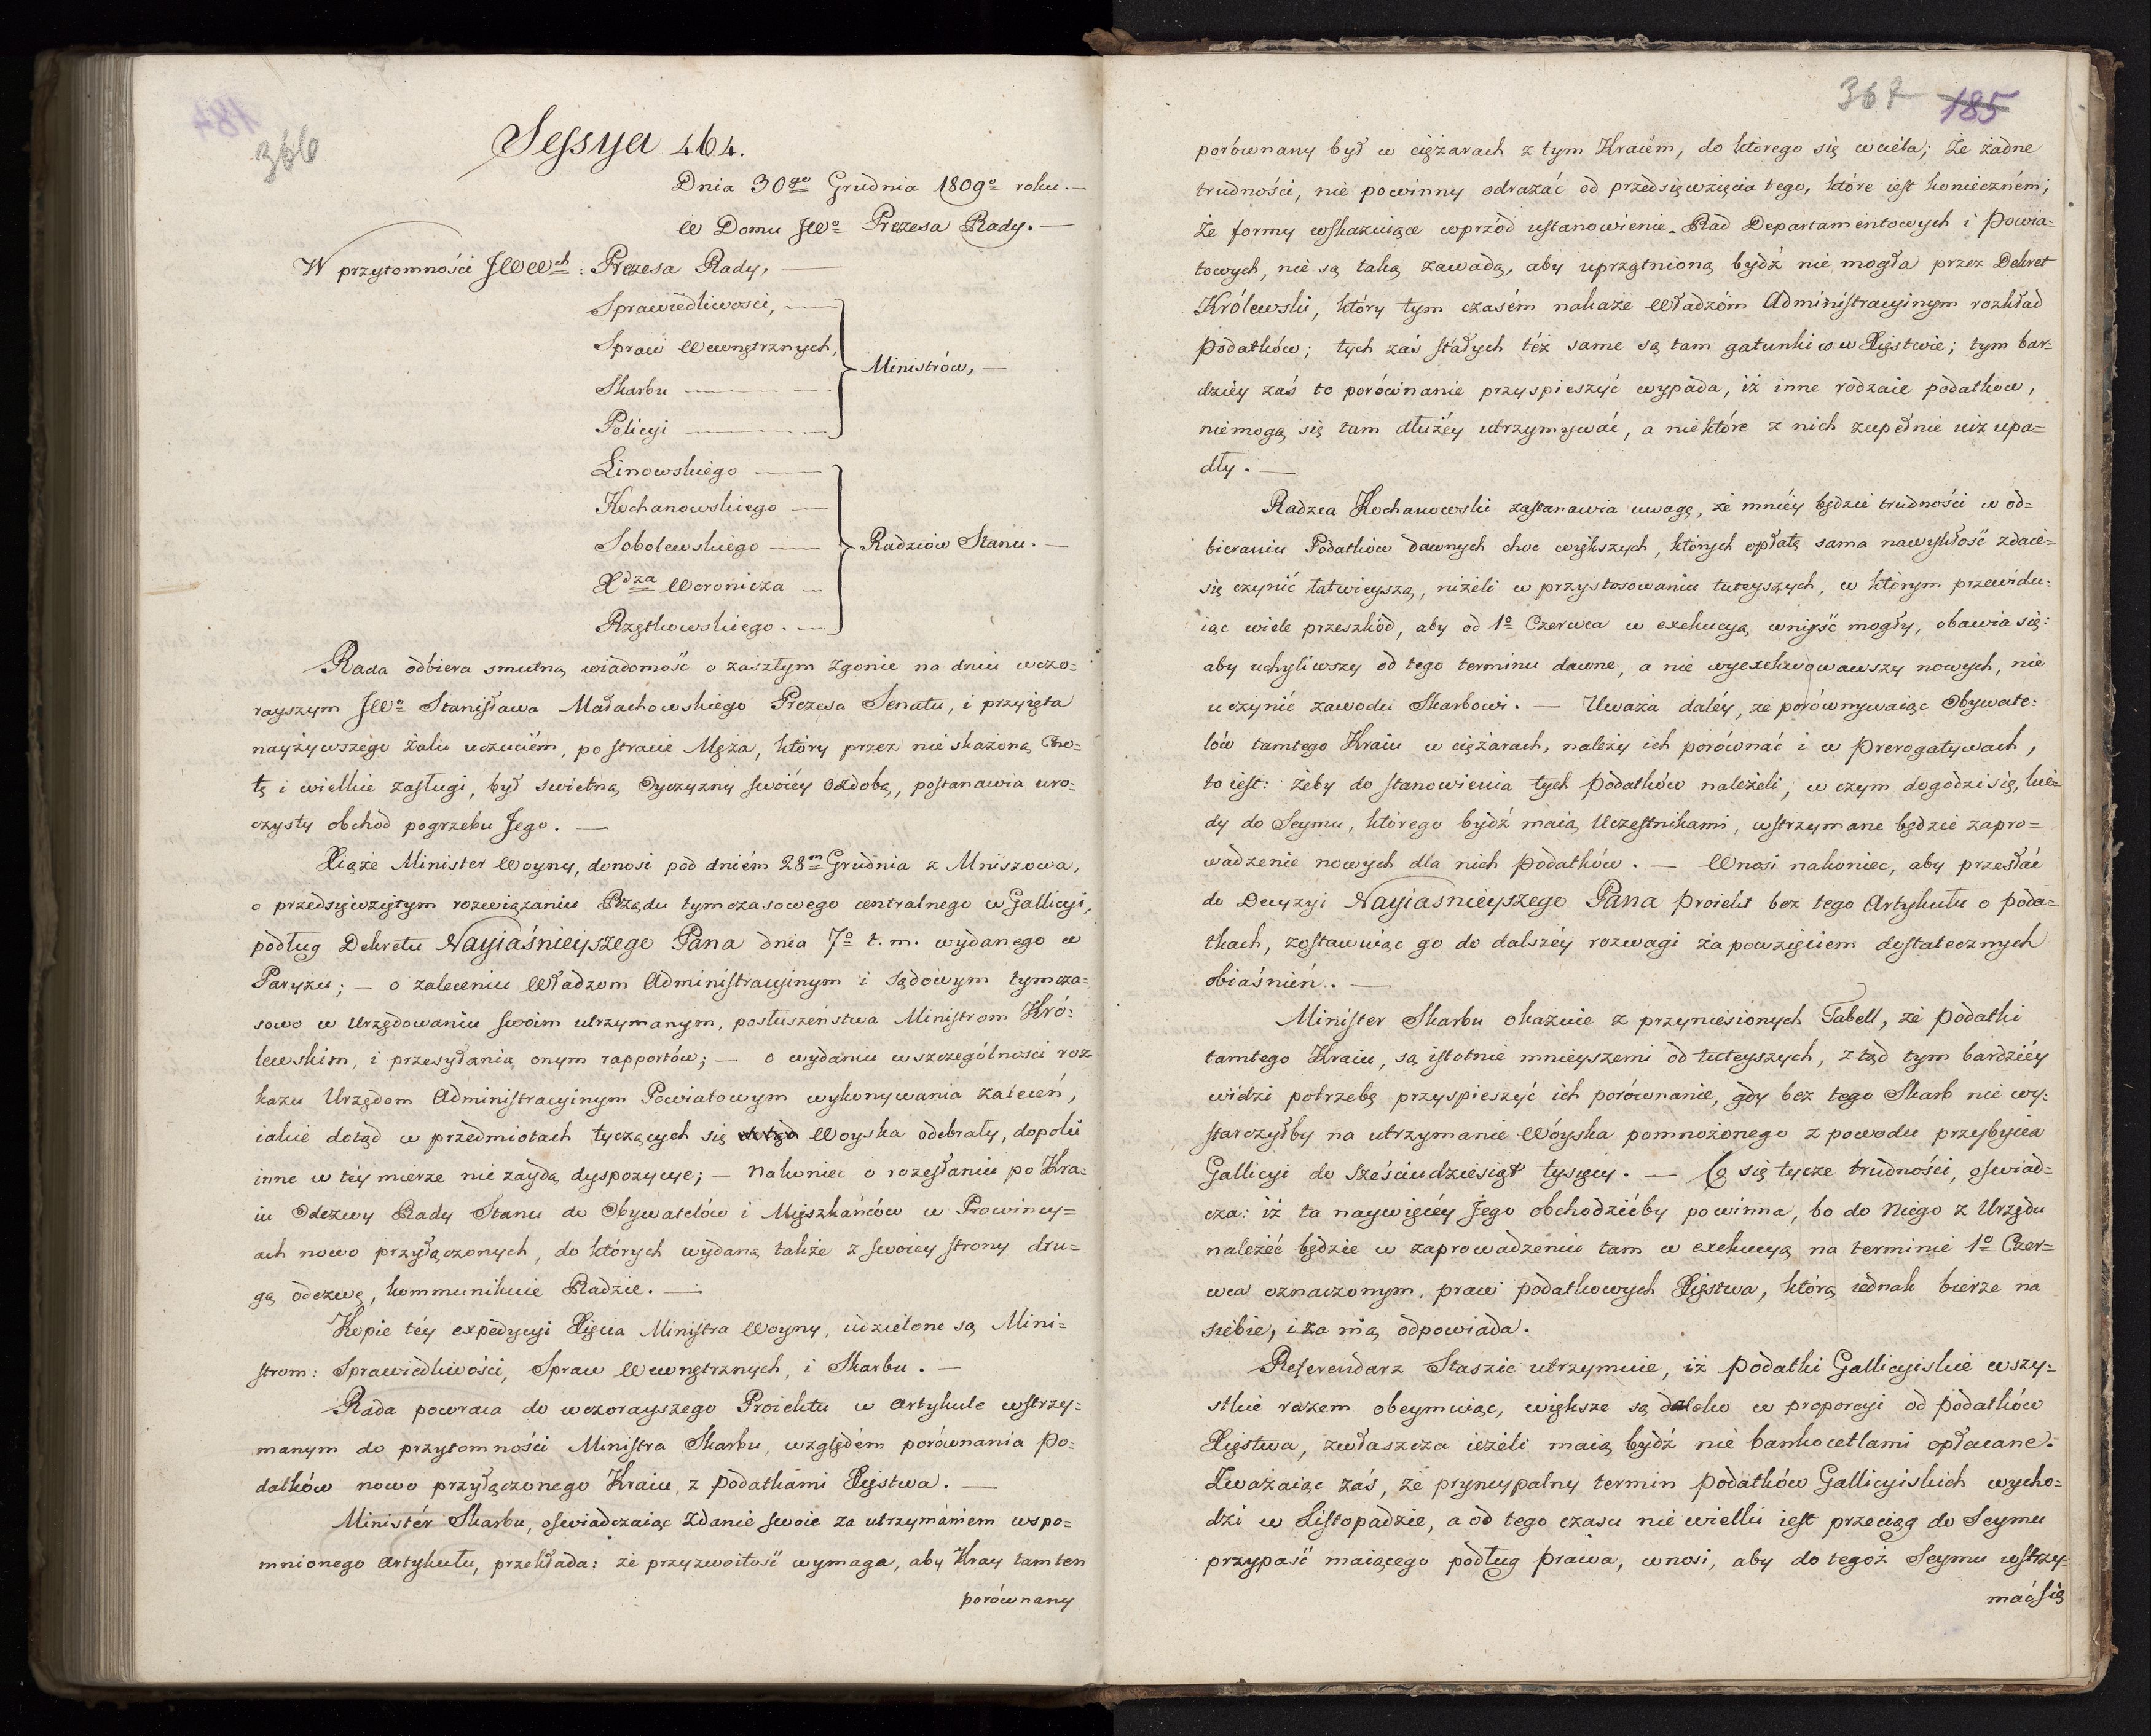 366
Sessya 464.
Dnia 30go Grudnia 1809o roku. —
w Domu JWo Prezesa Rady. —
W przytomności JWWch: Prezesa Rady, —
Sprawiedliwosci, —
Spraw Wewnętrznych,
Skarbu —
Policyi —
Ministrów, —
Linowskiego —
Kochanowskiego —
Sobolewskiego —
Xdza Woronicza —
Rzętkowskiego. —
Radzców Stanu. —
Rada odbiera smutną wiadomość o zaszłym zgonie na dniu wczo=
rayszym JWo Stanisława Małachowskiego Prezesa Senatu, i przyięta
nayżywszego żalu uczuciém, po stracie Męża, który przez nieskażoną Cno=
tę i wielkie zasługi, był swietną Oyczyzny swoiéy ozdobą, postanawia uro=
czysty obchód pogrzebu Jego. —
Xiąże Minister Woyny, donosi pod dniém 28m Grudnia z Mniszowa,
o przedsięwziętym rozwiązaniu Rządu tymczasowego centralnego w Gallicyi,
podług Dekretu Nayiaśnieyszego Pana dnia 7o t. m. wydanego w
Paryżu; — o zaleceniu Władzom Administracyinym i Sądowym tymcza=
sowo w Urzędowaniu swoim utrzymanym, posłuszeństwa Ministrom Kró=
lewskim, i przesyłania onym rapportów; — o wydaniu w szczególnosci roz
kazu Urzędom Administracyinym Powiatowym wykonywania zaleceń,
iakie dotąd w przedmiotach tyczących się dotąd Woyska odebrały, dopoki
inne w téy mierze nie zaydą dyspozycye; — Nakoniec o rozesłaniu po Kra=
iu Odezwy Rady Stanu do Obywatelów i Mieszkańców w Prowincy=
ach nowo przyłączonych, do których wydaną także z swoiey strony dru=
gą odezwę, kommunikuie Radzie. —
Kopie téy expedycyi Xięcia Ministra Woyny, udzielone są Mini=
strom: Sprawiedliwości, Spraw Wewnętrznych, i Skarbu. —
Rada powraca do wczorayszego Proiektu w artykule wstrzy=
manym do przytomności Ministra Skarbu, względém porównania po=
datków nowo przyłączonego Kraiu, z podatkami Xięstwa. —
Ministér Skarbu, oswiadczaiąc zdanie swoie za utrzymaniem wspo=
mnionego artykułu, przekłada: że przyzwoitość wymaga, aby Kray tamten
porównany
367 185
porównany był w ciężarach z tym Kraiém, do którego się wciéla; Że żadne
trudności, nie powinny odrażać od przedsięwzięcia tego, które iest konieczném;
Że formy wskazuiące wprzód ustanowienie Rad Departamentowych i Powia=
towych, nie są taką zawadą, aby uprzątnioną bydź nie mogła przez Dekret
Królewski, który tym czasém nakaże Władzóm Administracyinym rozkład
podatków; tych zaś stałych też same są tam gatunki co w Xięstwie; tym bar=
dziéy zaś to porównanie przyspieszyć wypada, iż inne rodzaie podatkow,
niemogą się tam dłużéy utrzymywać, a niektóre z nich zupełnie iuż upa=
dły. —
Radzca Kochanowski zastanawia uwagę, że mniéy będzie trudności w od=
bieraniu Podatków dawnych choc większych, których opłatę sama nawykłość zdaie=
się czynić łatwieyszą, niżeli w przystosowaniu tuteyszych, w którym przewidu=
iąc wiele przeszkód, aby od 1o Czerwca w exekucyą wniyść mogły, obawia się:
aby uchyliwszy od tego terminu dawne, a nie wyexekwowawszy nowych, nie
uczynić zawodu Skarbowi. — Uważa daléy, że porównywaiąc Obywate=
lów tamtego Kraiu w ciężarach, należy ich porównać i w prerogatywach,
to iest: żeby do stanowienia tych podatków należeli, w czym dogodzi się, kie=
dy do Seymu, którego bydź maią Uczestnikami, wstrzymane będzie zapro=
wadzenie nowych dla nich podatków. — Wnosi nakoniec, aby przesłać
do Decyzyi Nayiasnieyszego Pana proiekt bez tego Artykułu o poda=
tkach, zostawuiąc go do dalszéy rozwagi za powzięciem dostatecznych
obiaśnień. —
Minister Skarbu okazuie z przyniesionych Tabell, że podatki
tamtego Kraiu, są istotnie mnieyszemi od tuteyszych, ztąd tym bardziéy
widzi potrzebę przyspieszyć ich porównanie, gdy bez tego Skarb nie wy=
starczyłby na utrzymanie Woyska pomnożonego z powodu przybycia
Gallicyi do Sześciudziesiąt tysięcy. — Co się tycze trudności, oswiad=
cza: iż ta naywięcéy Jego obchodziéby powinna, bo do Niego z Urzędu
należéć będzie w zaprowadzeniu tam w exekucyą na terminie 1o Czer=
wca oznaczonym, praw podatkowych Xięstwa, którą iednak bierze na
siebie, i za nią odpowiada.
Referendarz Staszic utrzymuie, iż podatki Gallicyiskie wszy=
stkie razem obeymuiąc, większe są daleko w proporcyi od podatków
Xięstwa, zwłaszcza ieżeli maią bydź nie bankocetlami opłacane.
Zważaiąc zaś, że pryncypalny termin podatków Gallicyiskich wycho=
dzi w Listopadzie, a od tego czasu nie wielki iest przeciąg do Seymu
przypaść maiącego podług prawa, wnosi, aby do tegoż Seymu wstrzy=
mać się